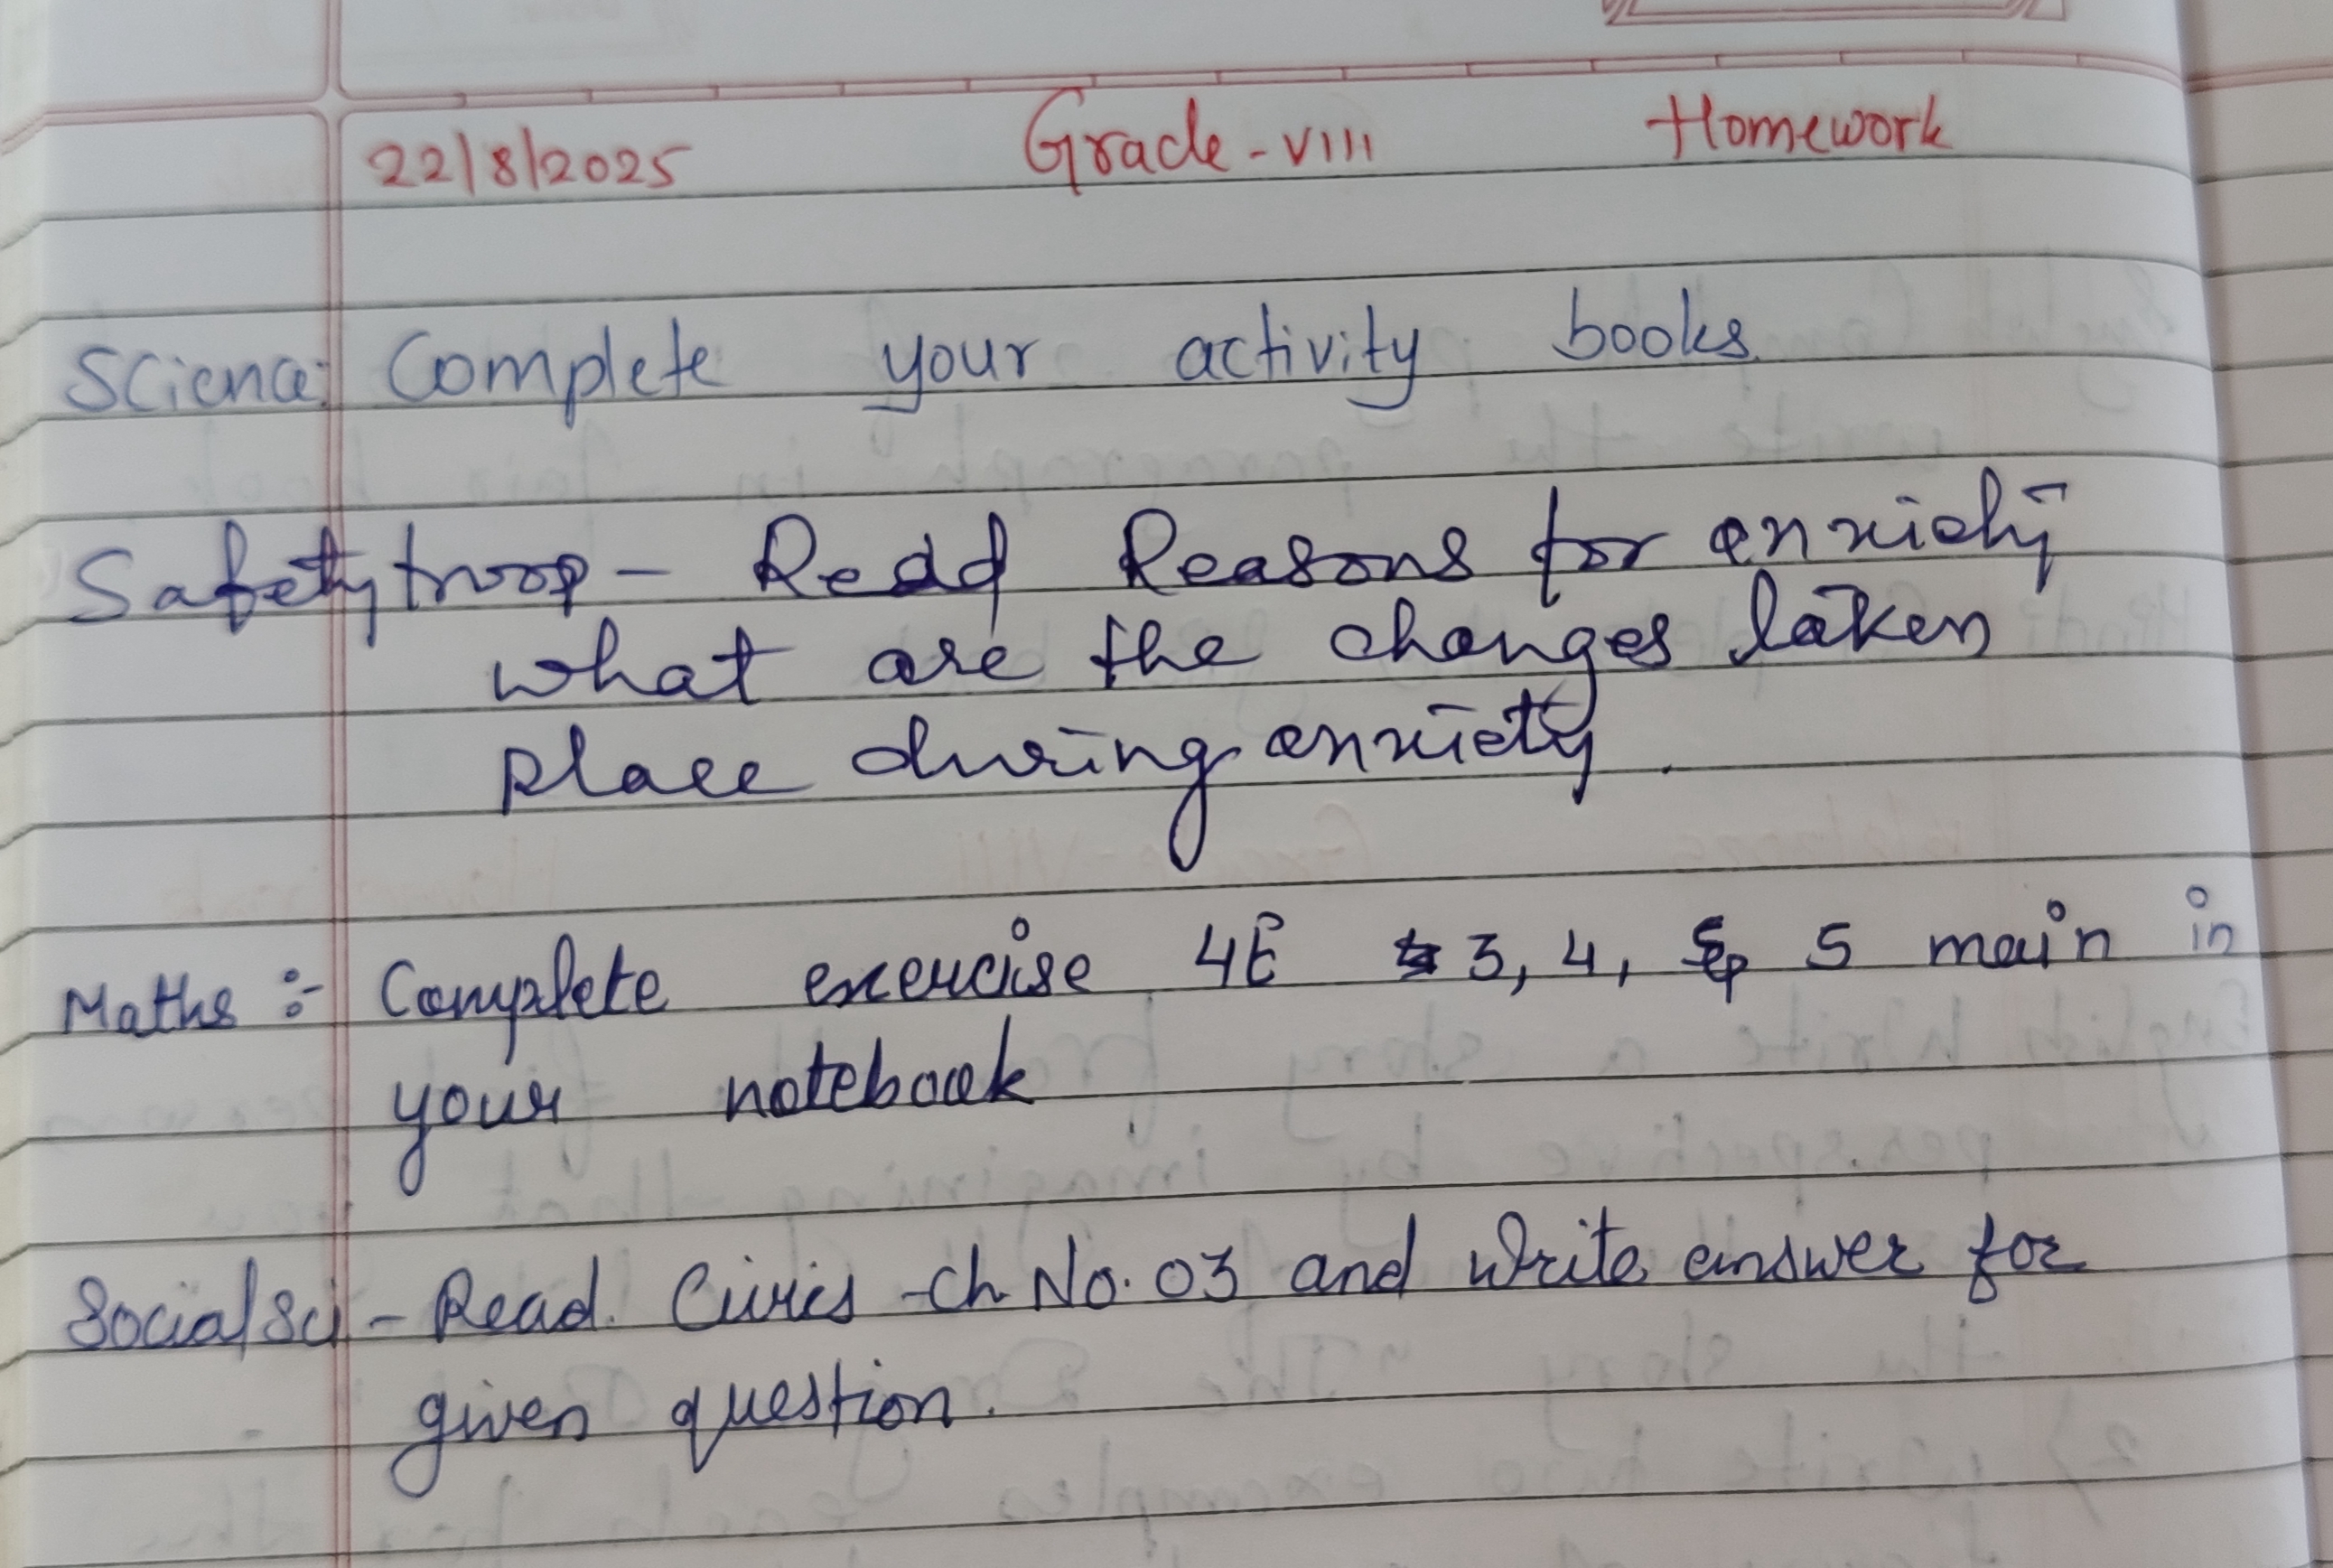 22/8/2025 Grade-VIII Homework
Science: Complete your activity books.
Safetytroop - Read Reasons for anxiety
what are the changes taken
place during anxiety.
Maths :- Complete exercise 4E 3, 4, & 5 main in
your notebook
Social Sci - Read. Civics Ch No. 03 and write answer for
given question.